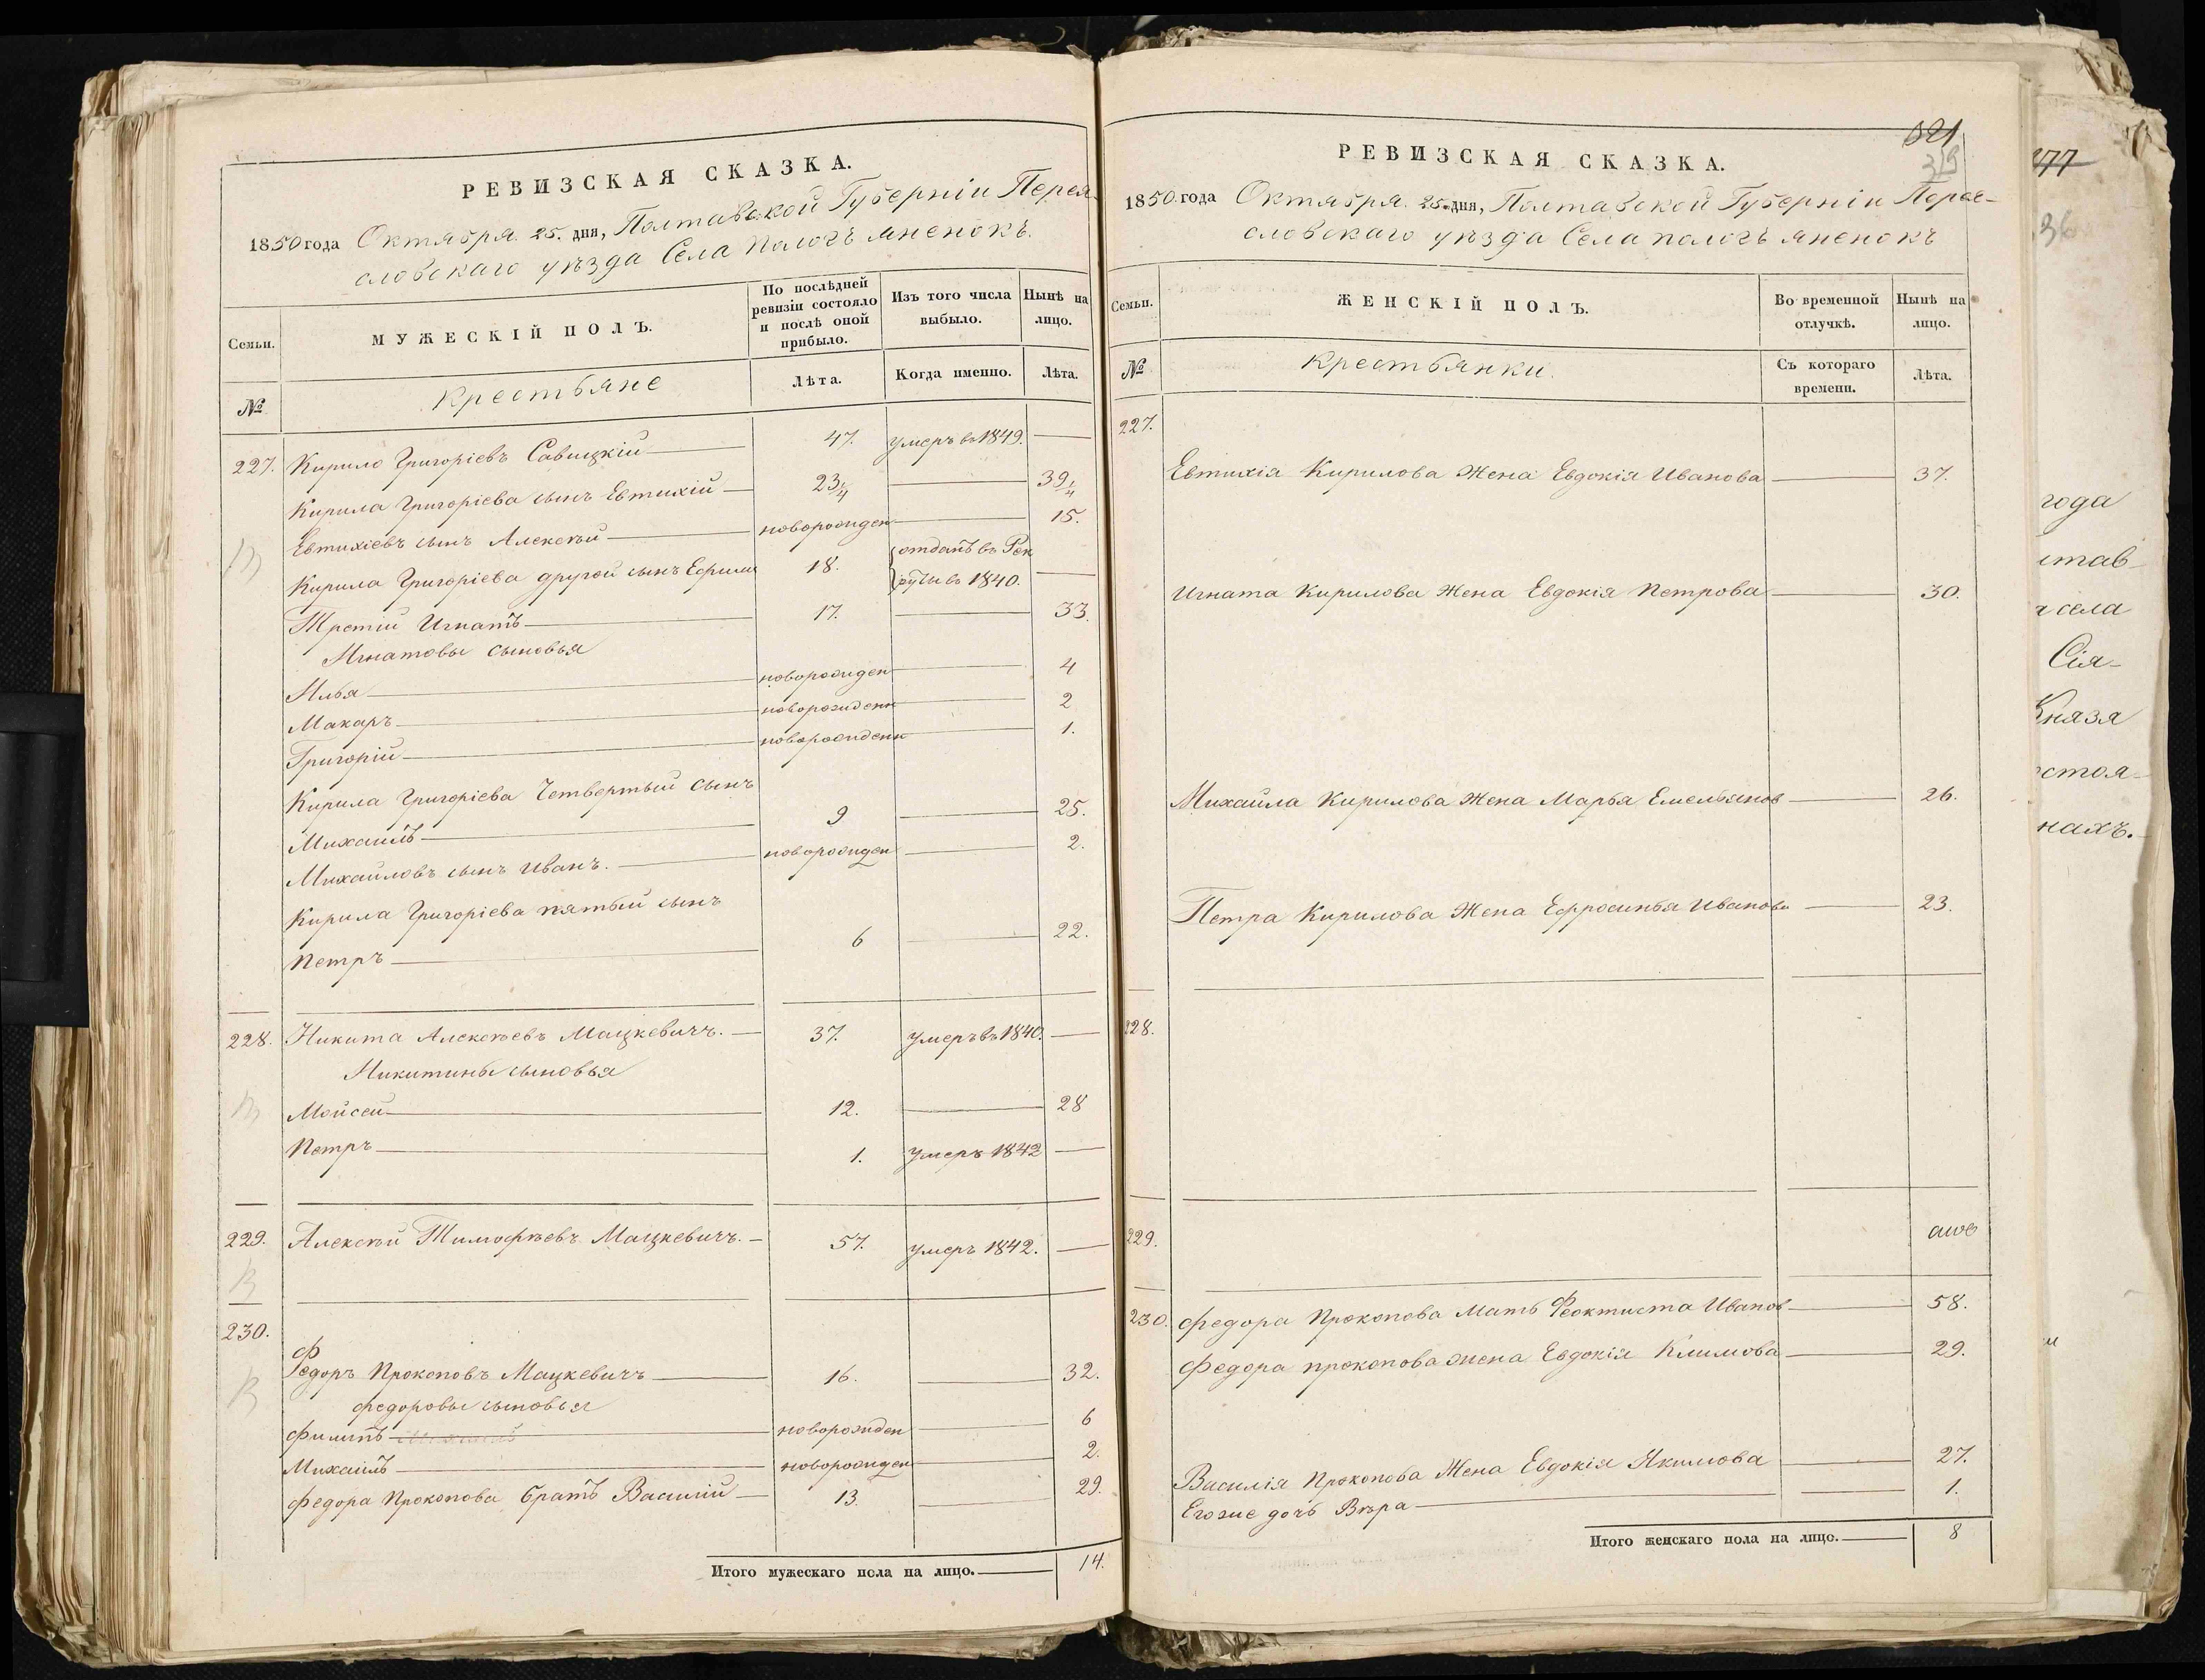 РЕВИЗСКАЯ СКАЗКА.
1850 года Октября 25. дня, Полтавской Губерніи Перея-
словскаго уѣзда Села Пологъ Яненокъ.
Семьи.
МУЖЕСКІЙ ПОЛЪ.
По послѣдней ревизіи состояло и послѣ оной прибыло.
Изъ того числа выбыло.
Нынѣ на лицо.
№
Крестьяне
Лѣта.
Когда именно.
Лѣта.
227. Кирило Григоріевъ Савицкій 47. умеръ въ 1849.
Кирила Григоріева сынъ Евтихій 23 1/4 39 1/4
Евтихіевъ сынъ Алексѣй новорожден 15.
Кирила Григоріева другой сынъ Ефимъ 18. отданъ въ Рек
руты въ 1840.
Третій Игнатъ 17. 33.
Игнатовы сыновья
Илья новорожден 4
Макаръ новорожденн 2
Григорій новорожденн 1.
Кирила Григоріева Четвертый сынъ
Михаилъ 9 25.
Михайловъ сынъ Иванъ. новорожден 2.
Кирила Григоріева пятый сынъ
Петръ 6 22.
228. Никита Алексѣевъ Мацкевичъ. 37. умеръ въ 1840.
Никитины сыновья
Мойсей 12. 28
Петръ 1. умеръ 1842
229. Алексѣй Тимофѣевъ Мацкевичъ. 57. умеръ 1842.
230.
Федоръ Прокоповъ Мацкевичъ 16. 32.
федоровы сыновья
Филипъ новорожден 6
Михаилъ новорожден 2.
Федора Прокопова братъ Василій 13. 29.
Итого мужескаго пола на лицо. 14.
321
319
РЕВИЗСКАЯ СКАЗКА.
1850 года Октября 25. дня, Полтавской Губерніи Перея-
словскаго уѣзда Села Пологъ Яненокъ
Семьи.
ЖЕНСКІЙ ПОЛЪ.
Во временной отлучкѣ.
Нынѣ на лицо.
№
Крестьянки.
Съ котораго времени.
Лѣта.
227.
Евтихія Кирилова Жена Евдокія Иванова 37.
Игната Кирилова Жена Евдокія Петрова 30.
Михайла Кирилова Жена Марья Емельянов 26.
Петра Кирилова Жена Ефросинья Иванова 23.
228.
229.
230. Федора Прокопова Мать Феоктиста Иванов 58.
Федора прокопова жена Евдокія Климова 29.
Василія Прокопова Жена Евдокія Якимова 27.
Егоже дочь Вѣра 1.
Итого женскаго пола на лицо. 8
277
года
став-
села
Сія-
Князя
стоя-
нахъ.